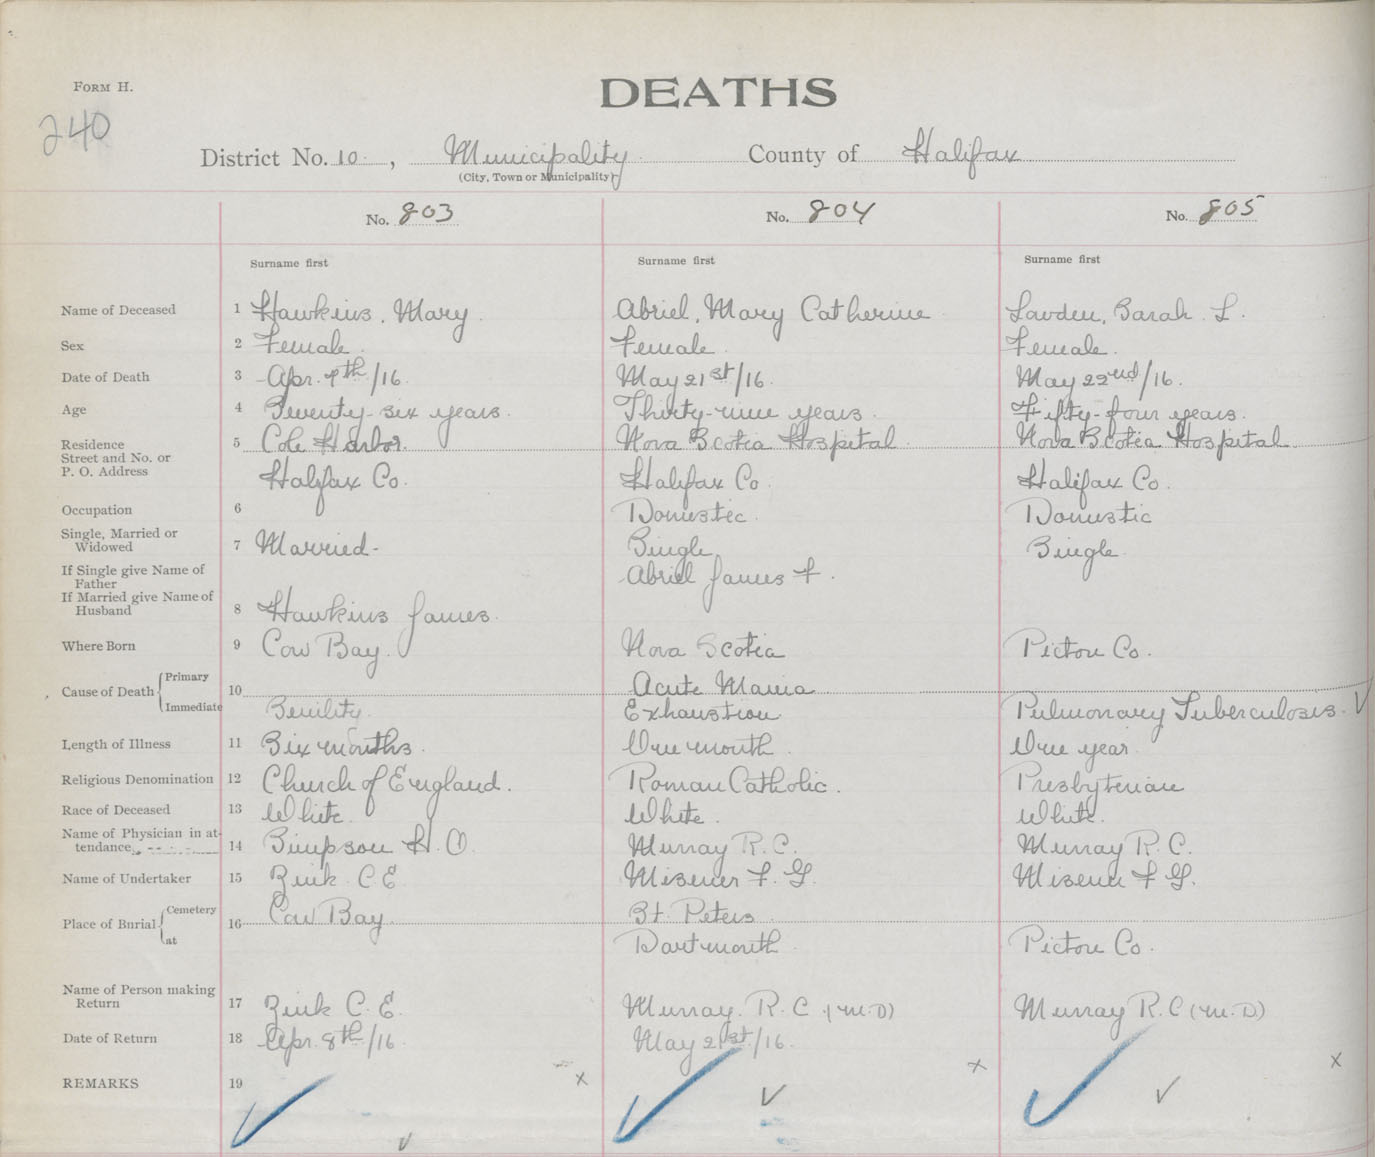 FORM H.
DEATHS
240
District No. 10, Municipality County of Halifax
(City, Town or Municipality)
No. 803 No. 804 No. 805
Surname first Surname first Surname first
Name of Deceased 1 Hawkins, Mary Abriel, Mary Catherine Sarah L.
Sex 2 Female Female Female
Date of Death 3 Apr. 7th/16. May 21st/16. May 22nd/16.
Age 4 Twenty-six years. Thirty-nine years. Fifty-four years.
Residence 5 Cole Harbor. Nova Scotia Hospital Nova Scotia Hospital
Street and No. or
P. O. Address Halifax Co. Halifax Co. Halifax Co.
Occupation 6 Domestic. Domestic
Single, Married or
Widowed 7 Married- Single Single
If Single give Name of
Father Abriel James F.
If Married give Name of
Husband 8 Hawkins James.
Where Born 9 Cow Bay. Nova Scotia Pictou Co.
Cause of Death Primary 10 Acute Mania
Immediate Senility. Exhaustion Pulmonary Tuberculosis.
Length of Illness 11 Six months. One month One year.
Religious Denomination 12 Church of England. Roman Catholic. Presbyterian
Race of Deceased 13 White. White. White.
Name of Physician in at-
tendance 14 Simpson H. O. Murray R. C. Murray R. C.
Name of Undertaker 15 Zink C E Misener F. G. Misener F G.
Place of Burial Cemetery 16 Cow Bay. St. Peters
at Dartmouth Pictou Co.
Name of Person making
Return 17 Zink C. E. Murray. R. C. (M.D) Murray R. C (M.D.)
Date of Return 18 Apr. 8th/16. May 21st/16.
REMARKS 19